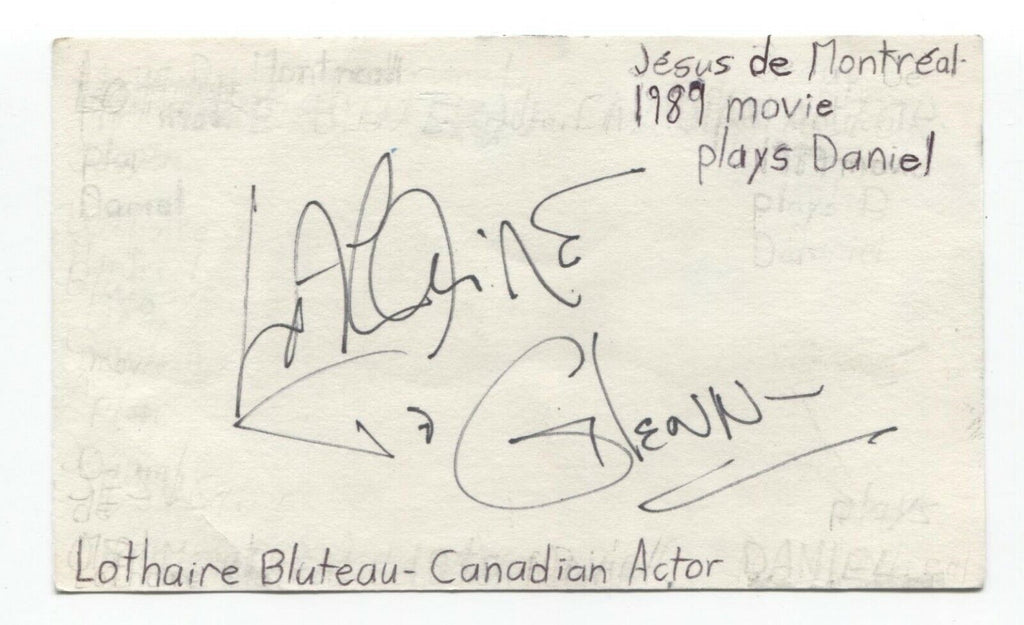 Jésus de Montréal
1989 movie
plays Daniel
Lothaire
to Glenn
Lothaire Bluteau - Canadian Actor